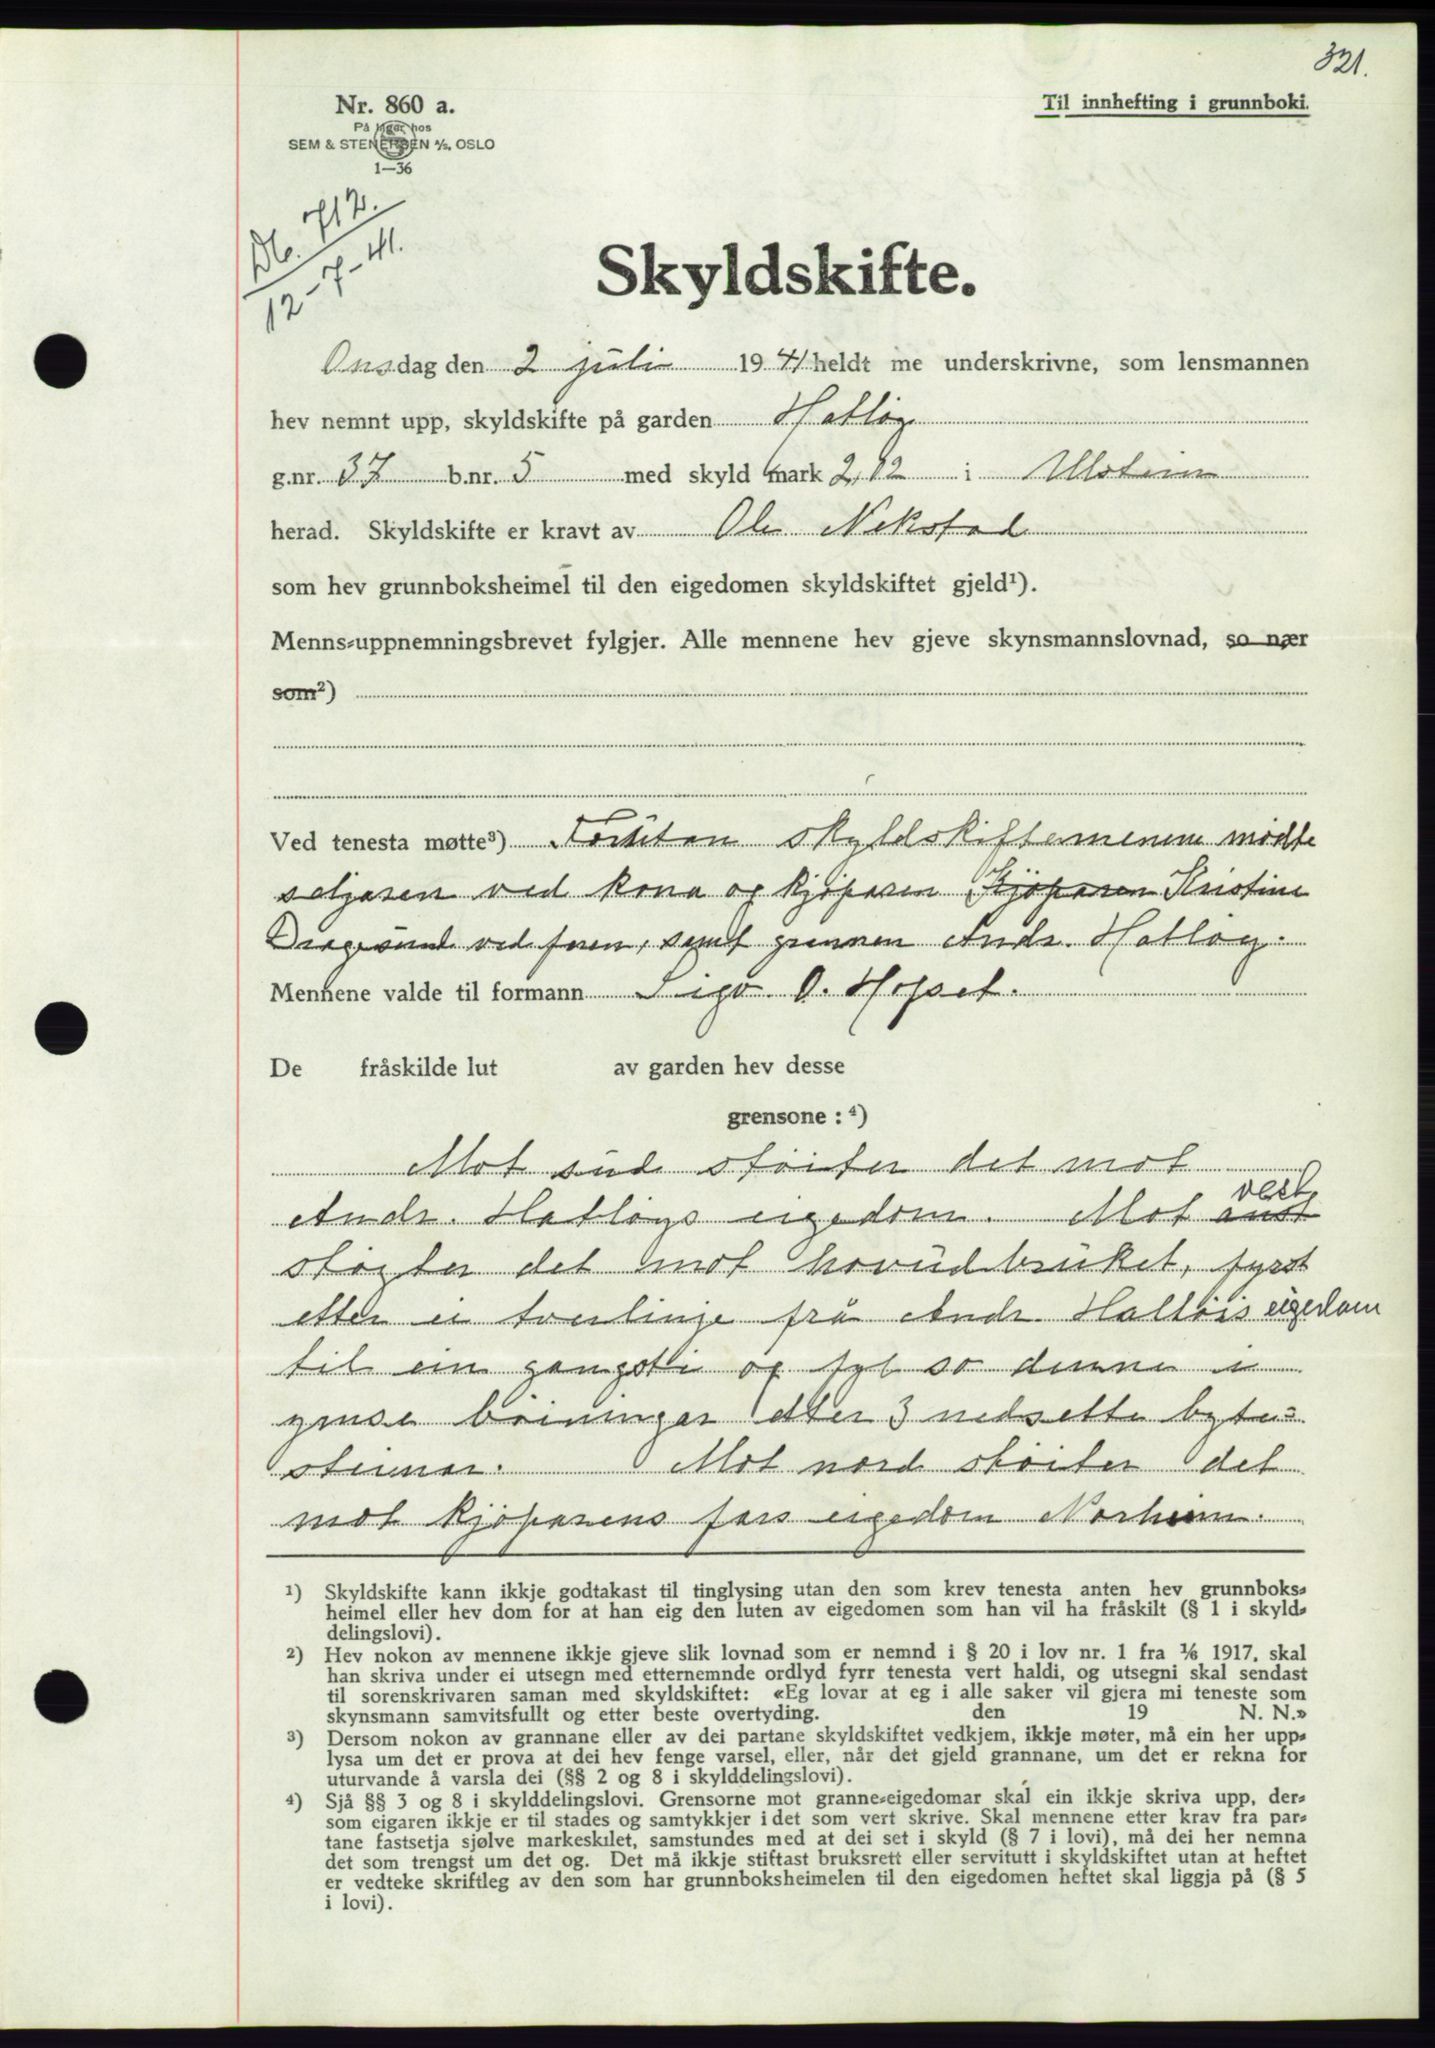 321.
Nr. 860 a.
Til innhefting i grunnboki.
På lager hos
SEM & STENERSEN A/S, OSLO
1—36
Db. 712.
12-7-41.
Skyldskifte.
Onsdag den 2 juli 1941 heldt me underskrivne, som lensmannen
hev nemnt upp, skyldskifte på garden Hatløy
g.nr. 37 b.nr. 5 med skyld mark 2,12 i Ulstein
herad. Skyldskifte er kravt av Ole Nekstad
som hev grunnboksheimel til den eigedomen skyldskiftet gjeld¹).
Menns-uppnemningsbrevet fylgjer. Alle mennene hev gjeve skynsmannslovnad, so nær
som²)
Ved tenesta møtte³) Forutan skyldskiftemenene mødte
seljaren ved kona og kjøparen Kjøparen Kristine
Dragesund ved faren, samt grannen Andr. Hatløy.
Mennene valde til formann Sigv. O. Hofset.
De fråskilde lut av garden hev desse
grensone : ⁴)
Mot sud støiter det mot
Andr. Hatløys eigedom. Mot aust vest
støyter det mot hovudbruket, fyrst
etter ei tverlinje frå Andr. Hatløis eigedom
til ein gangsti og fyl so denne i
ymse bøiningar etter 3 nedsette byte-
steinar. Mot nord støiter det
mot kjøparens fars eigedom Norheim.
¹) Skyldskifte kann ikkje godtakast til tinglysing utan den som krev tenesta anten hev grunnboks-
heimel eller hev dom for at han eig den luten av eigedomen som han vil ha fråskilt (§ 1 i skyld-
delingslovi).
²) Hev nokon av mennene ikkje gjeve slik lovnad som er nemnd i § 20 i lov nr. 1 fra 1/6 1917, skal
han skriva under ei utsegn med etternemnde ordlyd fyrr tenesta vert haldi, og utsegni skal sendast
til sorenskrivaren saman med skyldskiftet: «Eg lovar at eg i alle saker vil gjera mi teneste som
skynsmann samvitsfullt og etter beste overtyding. den 19 N. N.»
³) Dersom nokon av grannane eller av dei partane skyldskiftet vedkjem, ikkje møter, må ein her upp-
lysa um det er prova at dei hev fenge varsel, eller, når det gjeld grannane, um det er rekna for
uturvande å varsla dei (§§ 2 og 8 i skylddelingslovi).
⁴) Sjå §§ 3 og 8 i skylddelingslovi. Grensorne mot granne-eigedomar skal ein ikkje skriva upp, der-
som eigaren ikkje er til stades og samtykkjer i det som vert skrive. Skal mennene etter krav fra par-
tane fastsetja sjølve markeskilet, samstundes med at dei set i skyld (§ 7 i lovi), må dei her nemna
det som trengst um det og. Det må ikkje stiftast bruksrett eller servitutt i skyldskiftet utan at heftet
er vedteke skriftleg av den som har grunnboksheimelen til den eigedomen heftet skal liggja på (§ 5
i lovi).